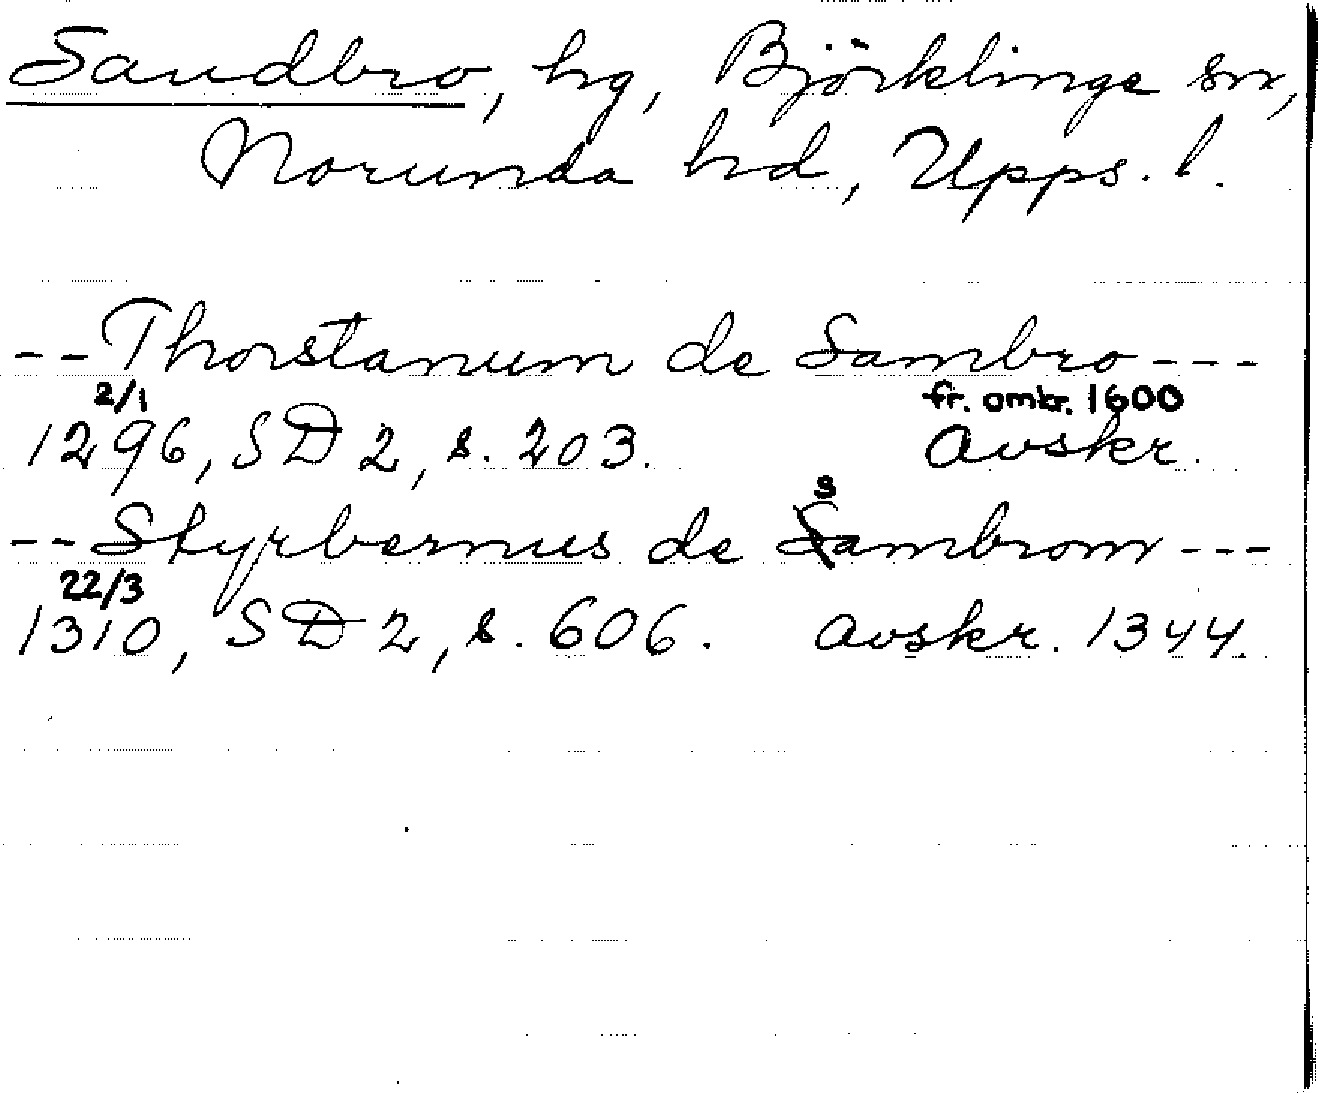 Sandbro, hg, Björklinge sn,
Norunda hd, Upps. l.
--Thorstanum de Sambro---
2/1 fr. omkr. 1600
1296, SD 2, s. 203. Avskr.
s
--Styrbernus de Sambrom---
22/3
1310, SD 2, s. 606. Avskr. 1344.